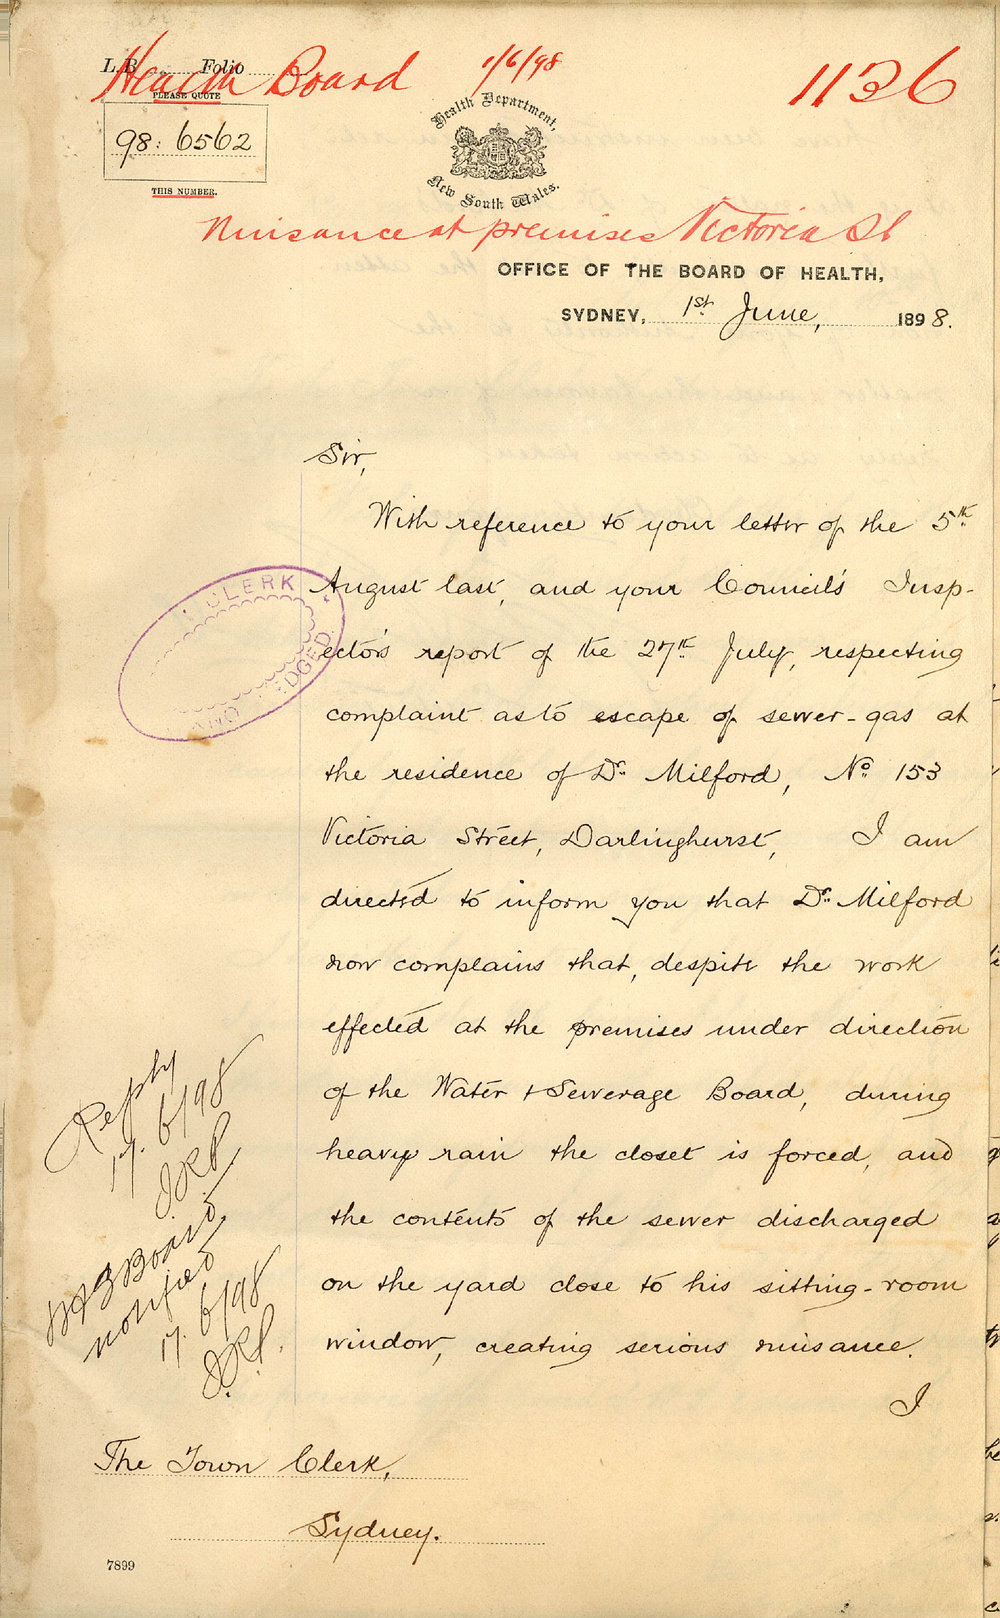 L.B. Folio
Health Board 1/6/98 1136
PLEASE QUOTE
98: 6562
THIS NUMBER.
Health Department,
New South Wales.
Nuisance at premises Victoria St
OFFICE OF THE BOARD OF HEALTH,
SYDNEY, 1st June, 1898.
Sir,
With reference to your letter of the 5th
August last, and your Council's Insp-
ector's report of the 27th July, respecting
complaint as to escape of sewer-gas at
the residence of Dr. Milford, No. 153
Victoria Street, Darlinghurst, I am
directed to inform you that Dr. Milford
now complains that, despite the work
effected at the premises under direction
of the Water & Sewerage Board, during
heavy rain the closet is forced, and
the contents of the sewer discharged
on the yard close to his sitting-room
window, creating serious nuisance.
I
CLERK
Reply
17.6/98
W & S Board
notified
17.6/98
The Town Clerk,
Sydney.
7899